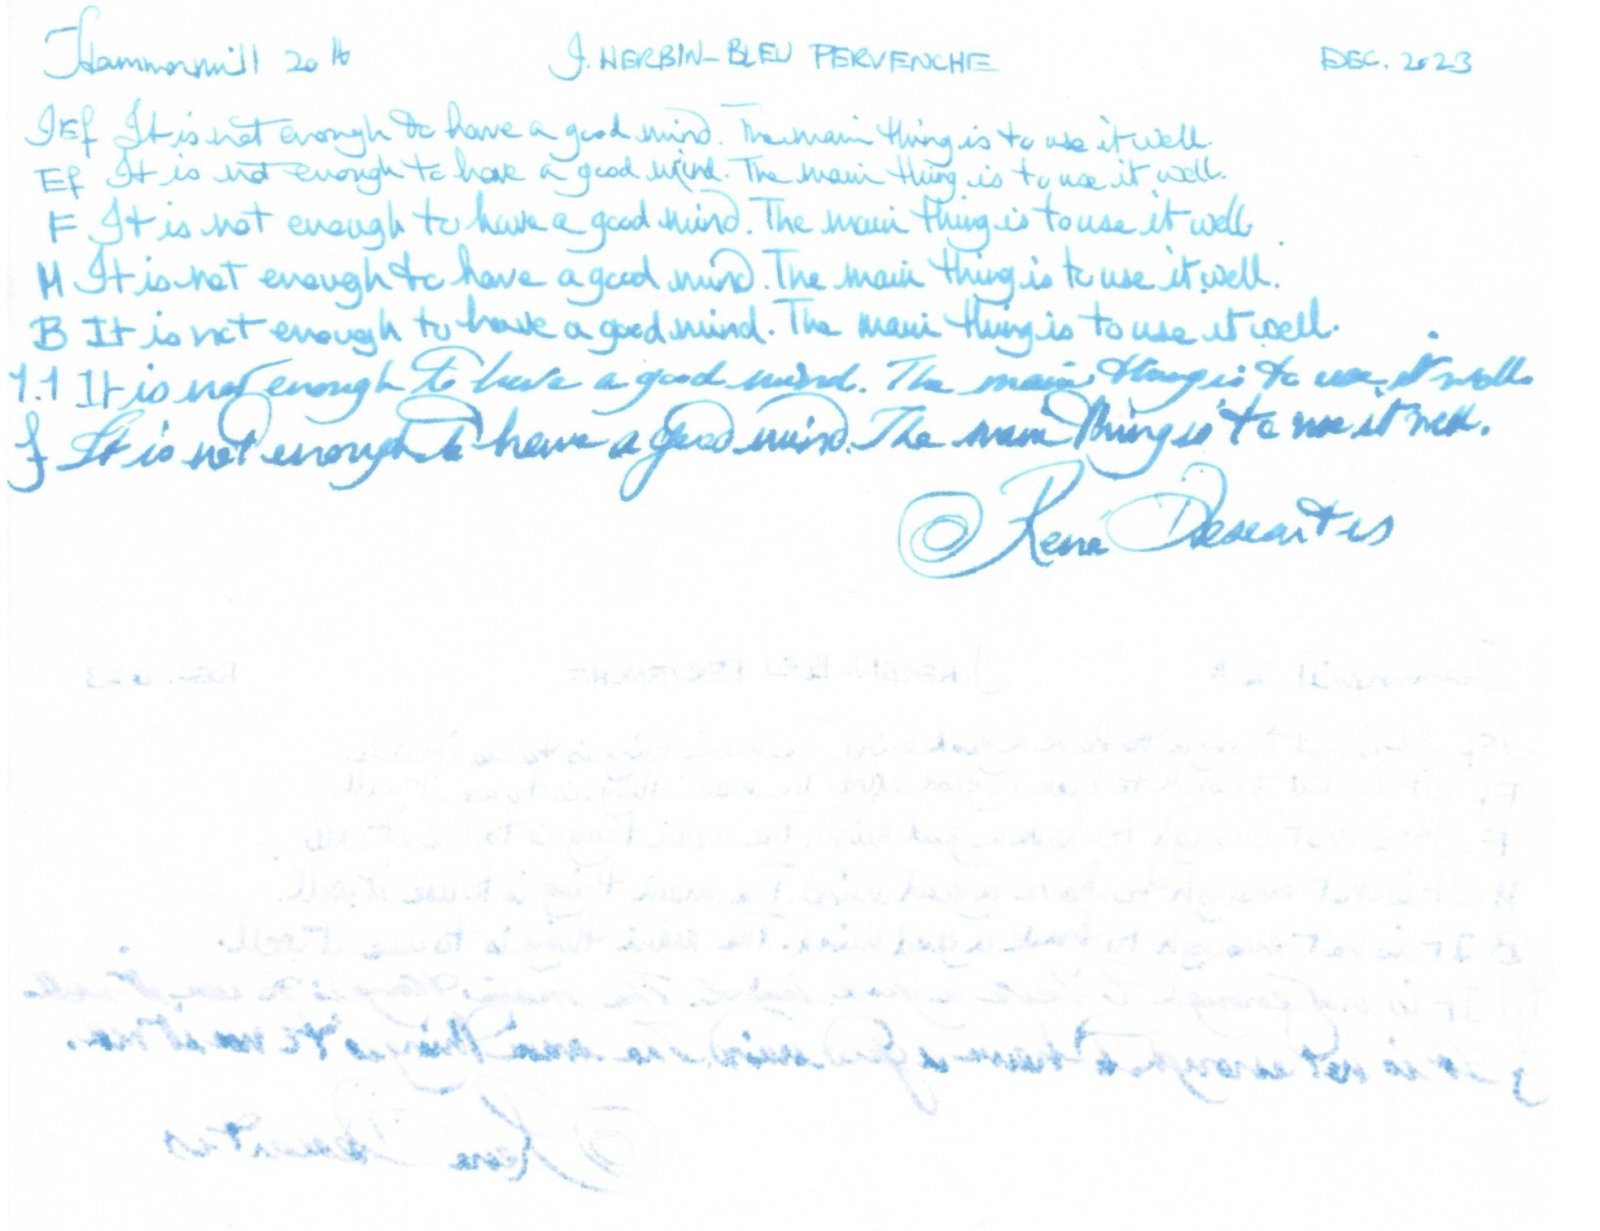 Hammermill 20 lb J. HERBIN-BLEU PERVENCHE DEC. 2023
JEf It is not enough to have a good mind. The main thing is to use it well.
Ef It is not enough to have a good mind. The main thing is to use it well.
F It is not enough to have a good mind. The main thing is to use it well.
M It is not enough to have a good mind. The main thing is to use it well.
B It is not enough to have a good mind. The main thing is to use it well.
1.1 It is not enough to have a good mind. The main thing is to use it well.
J It is not enough to have a good mind. The main thing is to use it well.
René Descartes